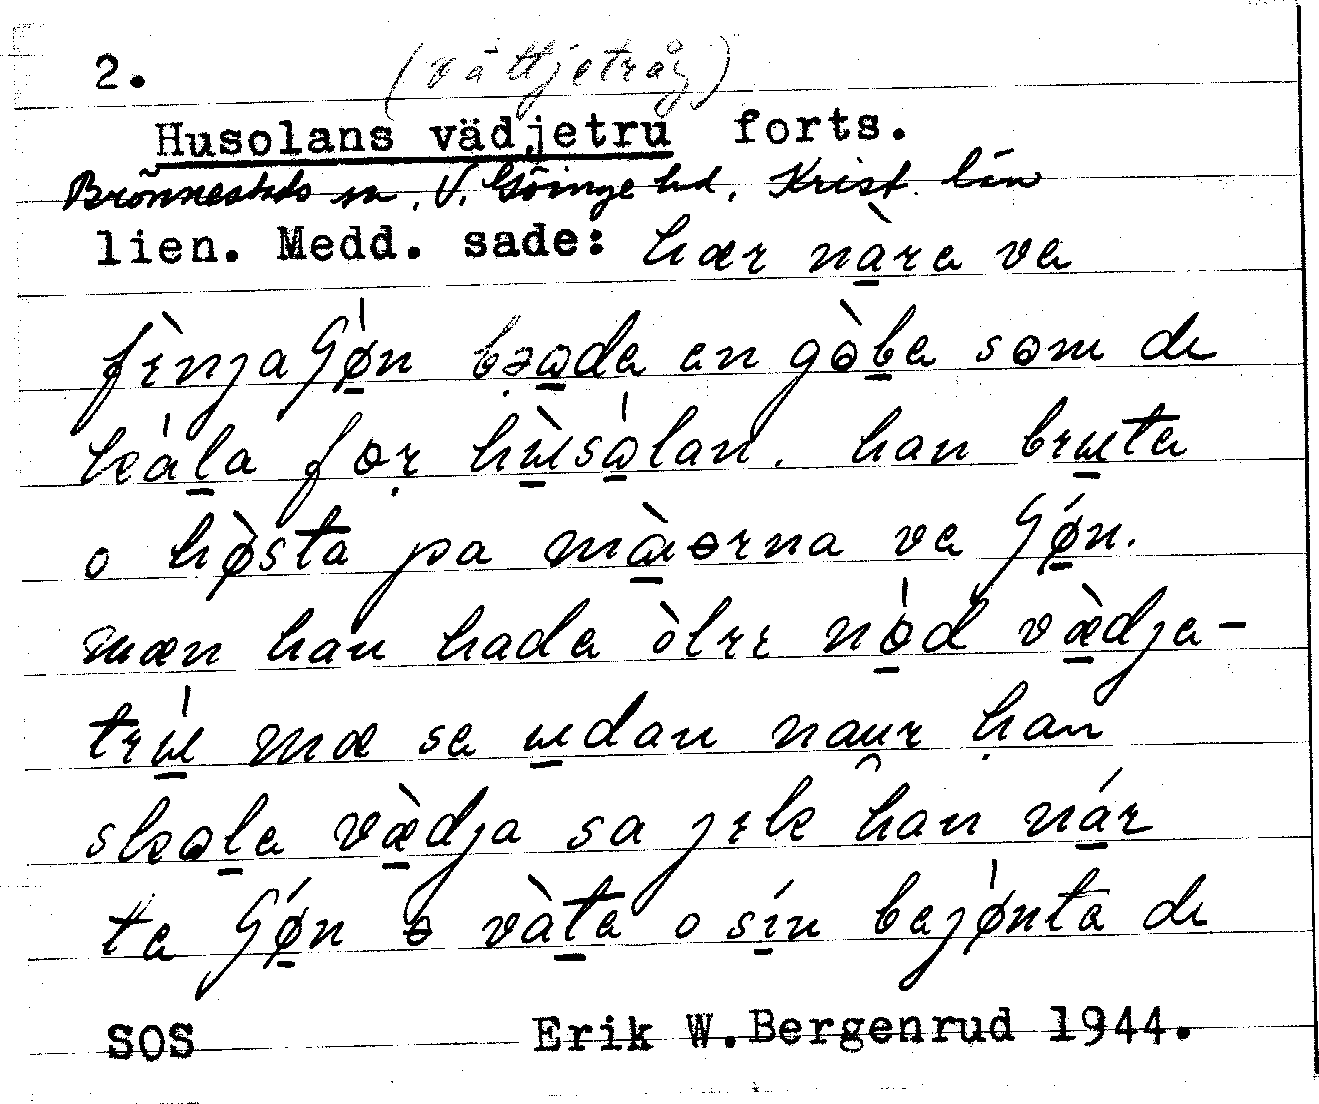 2.
(vättjeträg)
Husolans vädjetru forts.
Brönnestads sn, V. Göinge hd, Krist. län
lien. Medd. sade: hær nàra va
fìnjaʃǿn boda en gòba som de
kála for hùsólan. han bruta
o hø̀sta pa màorna va ʃǿn.
mæn han hada òlrı nód væ̀dja-
trú mæ se udan naur han
skola væ̀dja sa jık han nár
ta ʃǿn o vàta o sín bajǿnta de
SOS Erik W.Bergenrud 1944.